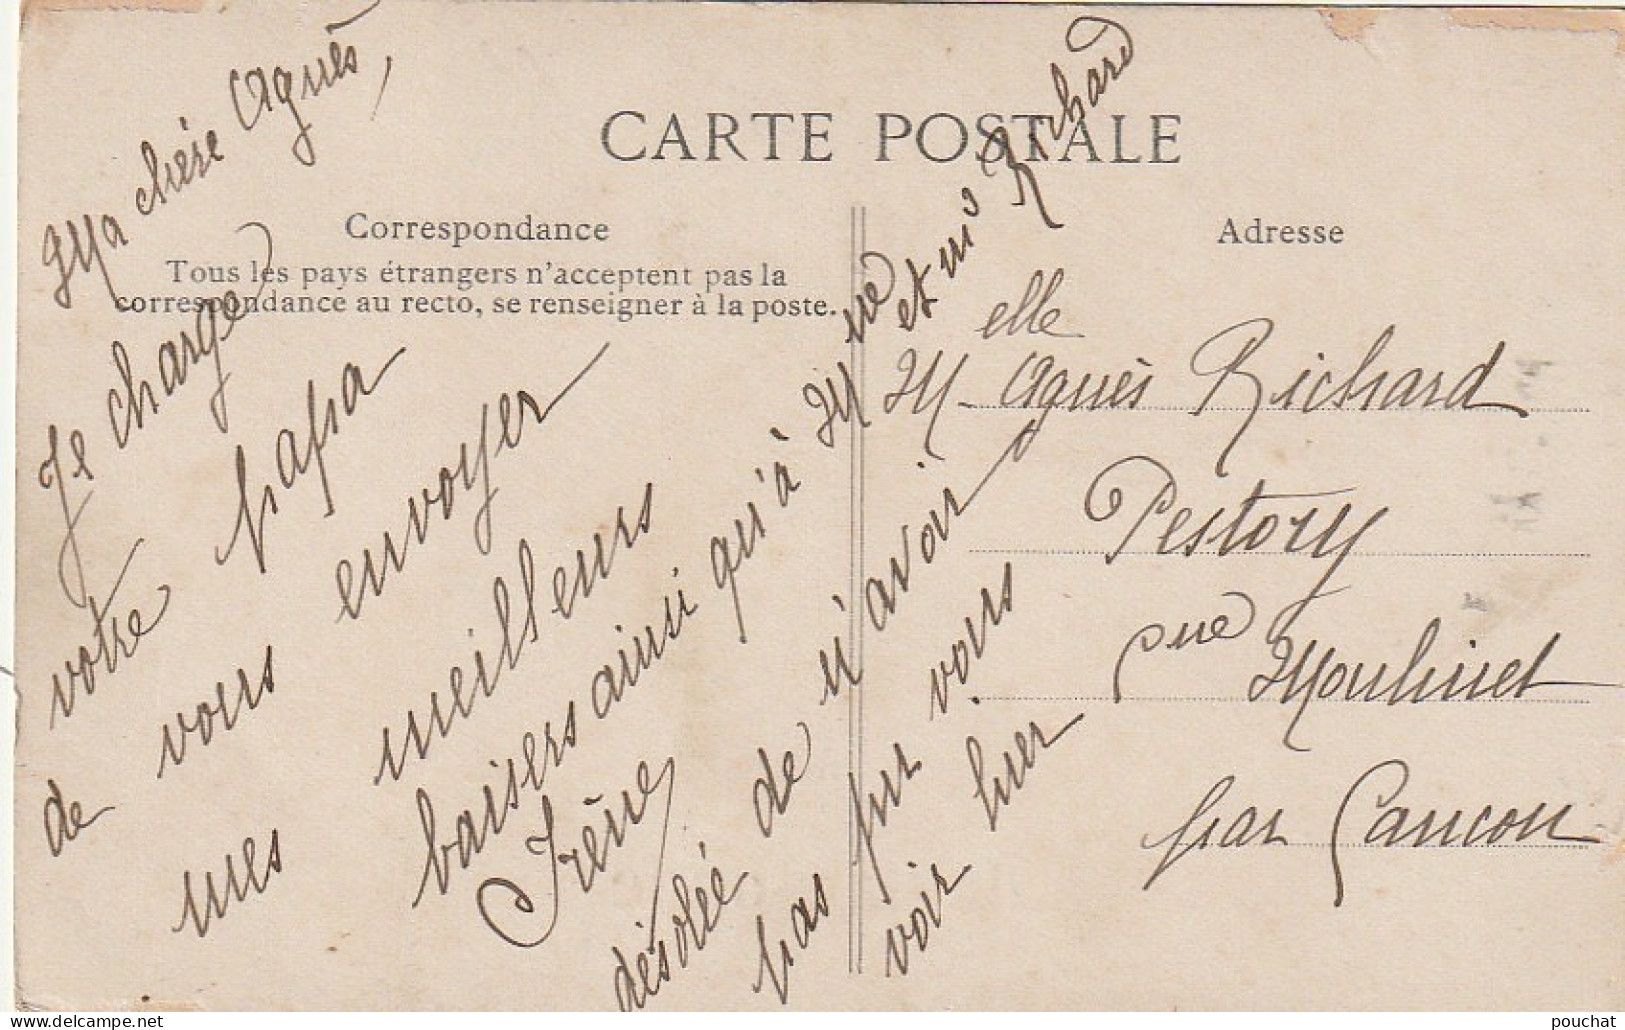 CARTE POSTALE
Correspondance
Tous les pays étrangers n'acceptent pas la
correspondance au recto, se renseigner à la poste.
Adresse
Ma chère Agnès,
Je charge
votre papa
de vous envoyer
mes meilleurs
baisers ainsi qu'à Mme et mr Richard
Irène
désolée de n'avoir
pas pu vous
voir hier
Melle Agnès Richard
Pestory
rue Moulinet
par Cancon
www.delcampe.net
pouchat